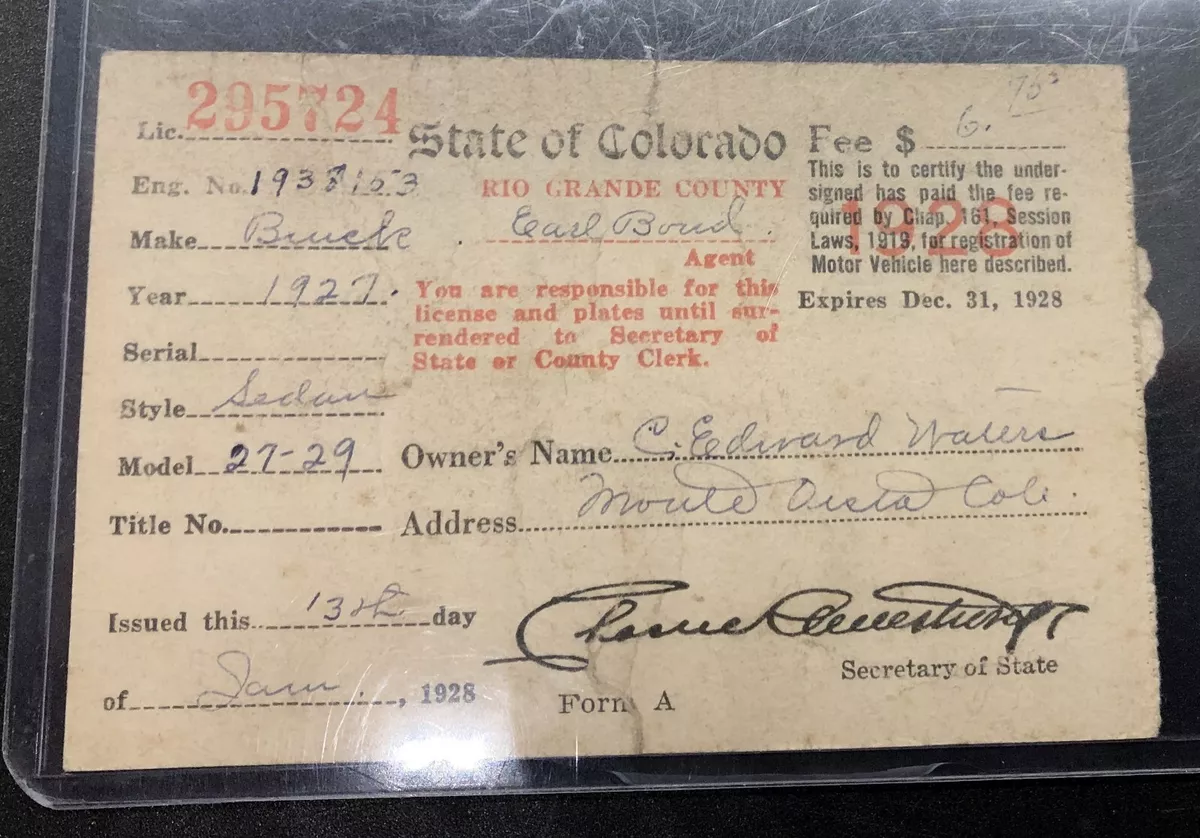 Lic. 295724
Eng. No. 1938153
Make Buick
Year 1927.
Serial
Style Sedan
Model 27-29
Title No.
Issued this 13th day
of Jan., 1928
State of Colorado
RIO GRANDE COUNTY
Earl Bond
Agent
You are responsible for this
license and plates until sur-
rendered to Secretary of
State or County Clerk.
Fee $ 6.
This is to certify the under-
signed has paid the fee re-
quired by Chap. 161, Session
Laws, 1919, for registration of
Motor Vehicle here described.
1928
Expires Dec. 31, 1928
Owner's Name C. Edward Waters
Address Monte Vista Colo.
Secretary of State
Form A